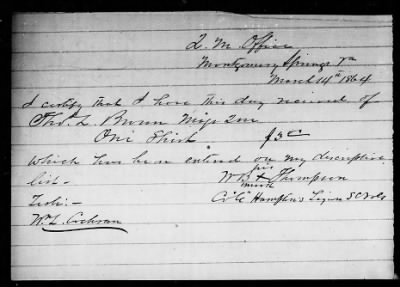 Q. M. Office
Montgomery Springs Va
March 14th 1864
I certify that I have this day received of
Thos. L. Brown Maj & 2m
One Shirt $3 00
which has been entered on my descriptive
list.
his
Wm X Thompson
mark
Co "C" Hampton's Legion SC Vols
Test:-
Wm. L. Cochran